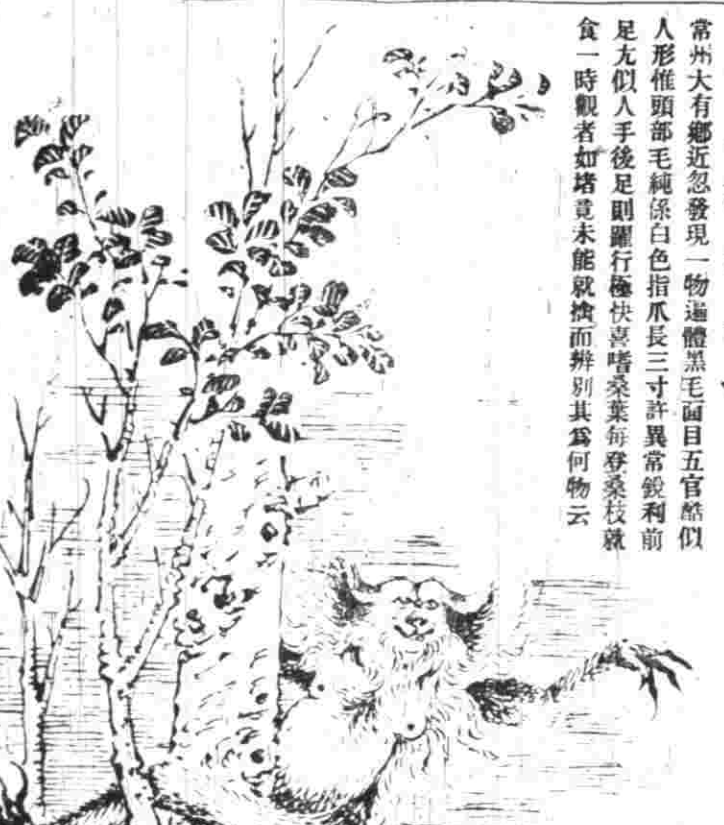 常州大有鄉近忽發現一物遍體黑毛面目五官酷似
人形惟頭部毛純係白色指爪長三寸許異常銳利前
足尢似人手後足則躍行極快喜嗜桑葉每登桑枝就
食一時觀者如堵竟未能就擒而辨別其爲何物云